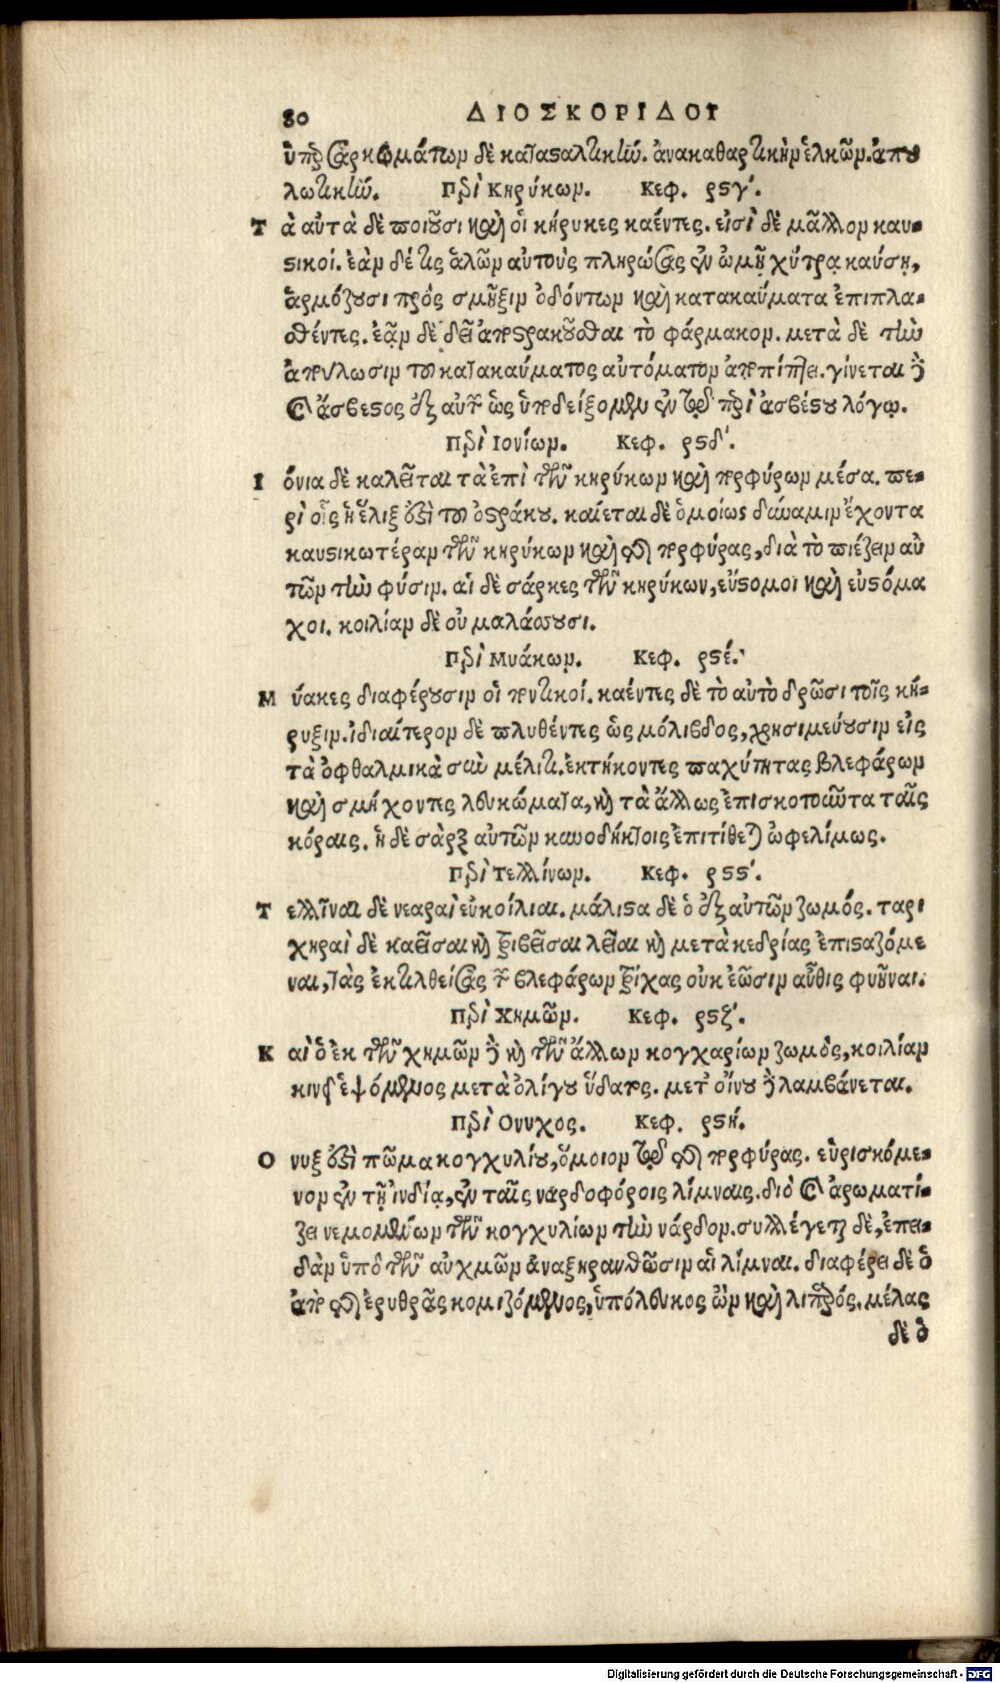 80 ΔΙΟΣΚΟΡΙΔΟΥ
ὑπερσαρκωμάτων δὲ κατασαλτικήν. ἀνακαθαρτικὴν ἑλκῶν. ἀπου
λωτικήν. Περὶ Κηρύκων. Κεφ. ρϛγ´.
Τὰ αὐτὰ δὲ ποιοῦσι καὶ οἱ κήρυκες καέντες. εἰσὶ δὲ μᾶλλον καυ-
στικοί. ἐὰν δέ τις ἁλῶν αὐτοὺς πληρώσας ἐν ὠμῇ χύτρᾳ καύσῃ,
ἁρμόζουσι πρὸς σμῆξιν ὀδόντων καὶ κατακαύματα ἐπιπλα-
σθέντες. ἐᾷν δὲ δεῖ ἀποστρακοῦσθαι τὸ φάρμακον. μετὰ δὲ τὴν
ἀπούλωσιν τοῦ κατακαύματος αὐτόματον ἀποπίπτει. γίνεται δὲ
καὶ ἄσβεστος ἐξ αὐτῶν ὡς ὑποδείξομεν ἐν τῷ περὶ ἀσβέστου λόγῳ.
Περὶ Ιονίων. Κεφ. ρϛδ´.
Ιόνια δὲ καλεῖται τὰ ἐπὶ τῶν κηρύκων καὶ πορφύρων μέσα. πε-
ρὶ οἷς ἡ ἕλιξ ἐστὶ τοῦ ὀστράκου. καίεται δὲ ὁμοίως δύναμιν ἔχοντα
καυστικωτέραν τῶν κηρύκων καὶ τῆς πορφύρας, διὰ τὸ πιέζειν αὐ
τῶν τὴν φύσιν. αἱ δὲ σάρκες τῶν κηρύκων, εὔστομοι καὶ εὐστόμα
χοι. κοιλίαν δὲ οὐ μαλάσσουσι.
Περὶ Μυάκων. Κεφ. ρϛέ.
Μύακες διαφέρουσιν οἱ ποντικοί. καέντες δὲ τὸ αὐτὸ δρῶσι τοῖς κή-
ρυξιν. ἰδιαίτερον δὲ πλυθέντες ὡς μόλιβδος, χρησιμεύουσιν εἰς
τὰ ὀφθαλμικὰ σὺν μέλιτι. ἐκτήκοντες παχύτητας βλεφάρων
καὶ σμήχοντες λευκώματα, καὶ τὰ ἄλλως ἐπισκοτοῦντα ταῖς
κόραις. ἡ δὲ σὰρξ αὐτῶν κυνοδήκτοις ἐπιτίθεται ὠφελίμως.
Περὶ Τελλίνων. Κεφ. ρϛϛ´.
Τελλῖναι δὲ νεαραὶ εὐκοίλιαι. μάλιστα δὲ ὁ ἐξ αὐτῶν ζωμός. ταρι
χηραὶ δὲ καεῖσαι καὶ τριβεῖσαι λεῖαι καὶ μετὰ κεδρίας ἐπισταζόμε
ναι, τὰς ἐκτιλθείσας τῶν βλεφάρων τρίχας οὐκ ἐῶσιν αὖθις φυῆναι.
Περὶ Χημῶν. Κεφ. ρϛζ´.
Καὶ ὁ ἐκ τῶν χημῶν δὲ καὶ τῶν ἄλλων κογχαρίων ζωμὸς, κοιλίαν
κινεῖ ἑψόμενος μετὰ ὀλίγου ὕδατος. μετ' οἴνου δὲ λαμβάνεται.
Περὶ Ονυχος. Κεφ. ρϛή.
Ονυξ ἐστὶ πῶμα κογχυλίου, ὅμοιον τῷ τῆς πορφύρας. εὑρισκόμε-
νον ἐν τῇ ἰνδίᾳ, ἐν ταῖς ναρδοφόροις λίμναις. διὸ καὶ ἀρωματί-
ζει νεμομένων τῶν κογχυλίων τὴν νάρδον. συλλέγεται δὲ, ἐπει-
δὰν ὑπὸ τῶν αὐχμῶν ἀναξηρανθῶσιν αἱ λίμναι. διαφέρει δὲ ὁ
ἀπὸ τῆς ἐρυθρᾶς κομιζόμενος, ὑπόλευκος ὢν καὶ λιπαρός. μέλας
δὲ ὁ
Digitalisierung gefördert durch die Deutsche Forschungsgemeinschaft - DFG